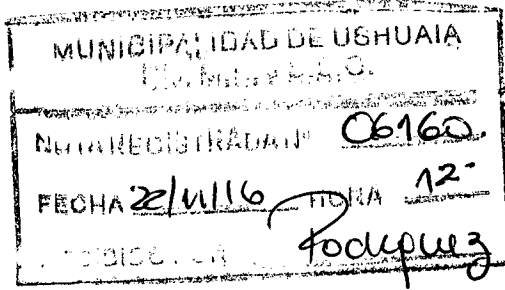 MUNICIPALIDAD DE USHUAIA
NOTA REGISTRADA Nº 06160.
FECHA 22/11/16 HORA 12-
Rodriguez